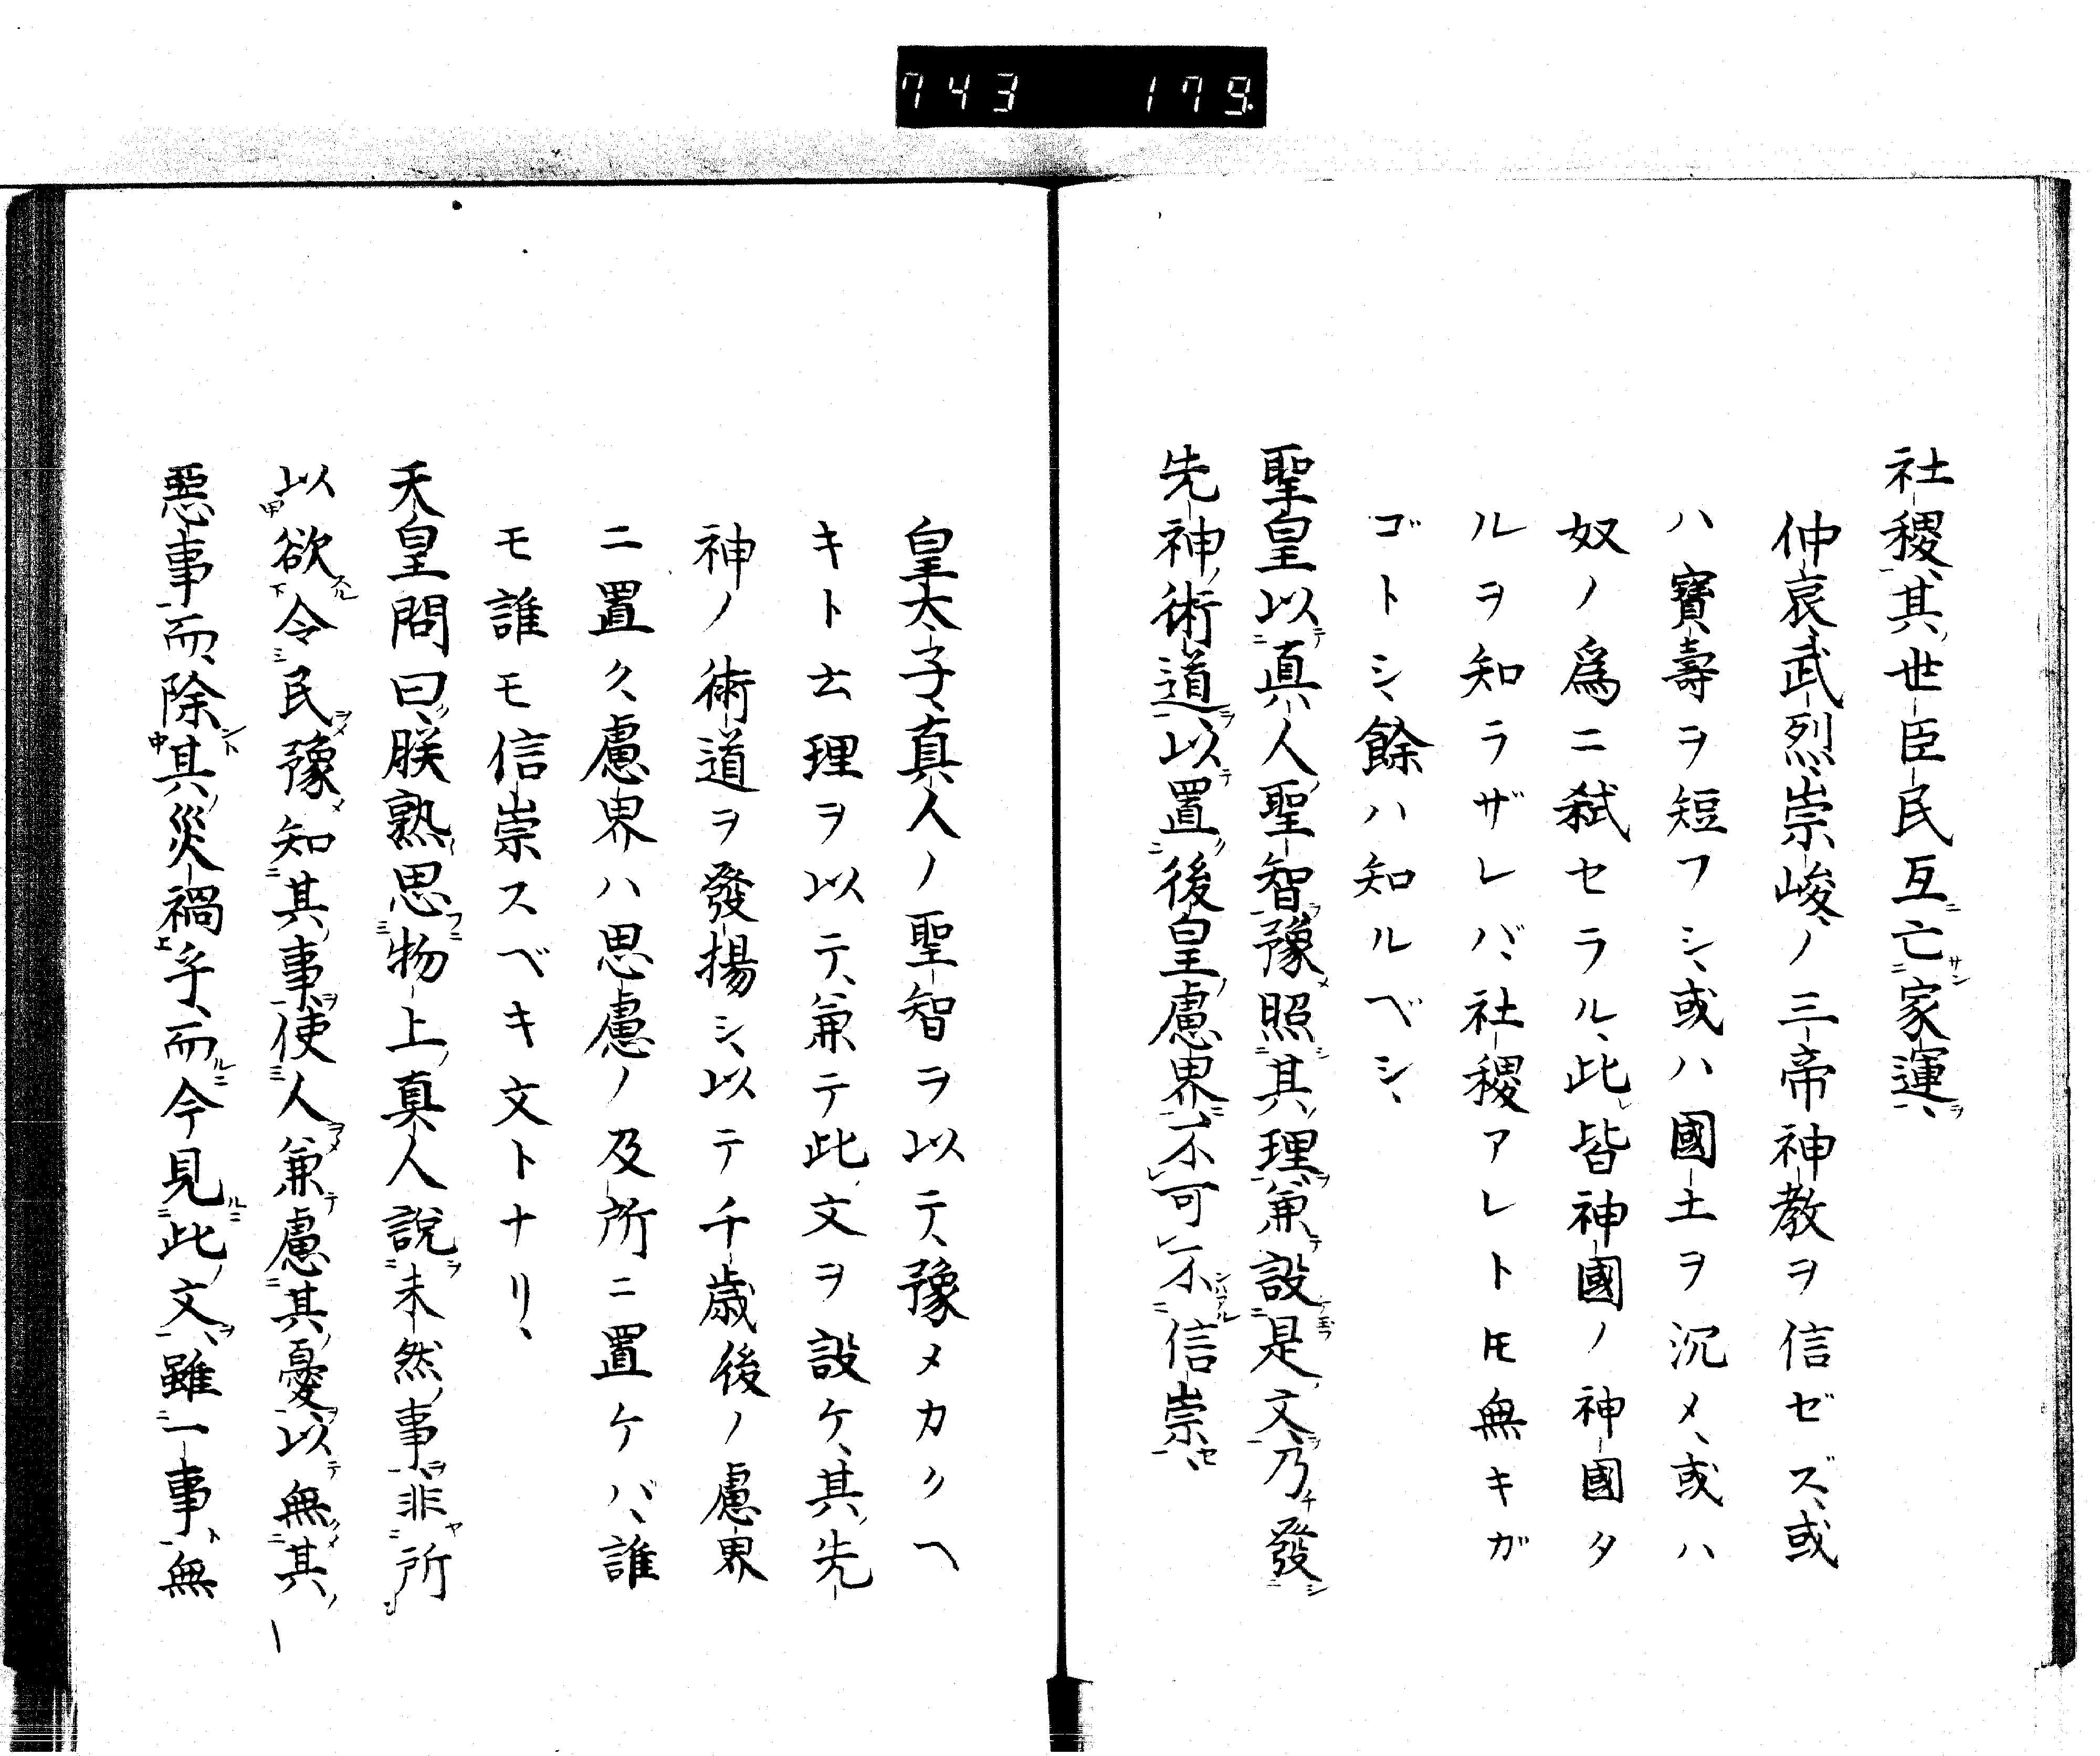 743 179
社稷、其世臣民互亡家運、
仲哀武烈崇峻ノ三帝神教ヲ信ゼズ、或
ハ寶壽ヲ短フシ、或ハ國土ヲ沉メ、或ハ
奴ノ爲ニ弑セラル、此皆神國ノ神國タ
ルヲ知ラザレバ、社稷アレトモ無キガ
ゴトシ、餘ハ知ルベシ、
聖皇以真人聖智豫照其理兼設是文、乃發
先神術道以置後皇慮界、不可不信崇、
皇太子真人ノ聖智ヲ以テ、豫メカクヘ
キト云理ヲ以テ、兼テ此文ヲ設ケ、其先
神ノ術道ヲ發揚シ、以テ千歳後ノ慮界
ニ置ク、慮界ハ思慮ノ及所ニ置ケバ、誰
モ誰モ信崇スベキ文トナリ、
天皇問曰、朕熟思物上真人說未然事、非所
以欲令民豫知其事、使人兼慮其憂、以無其
惡事而、除其災禍乎、而今見此文、雖一事無